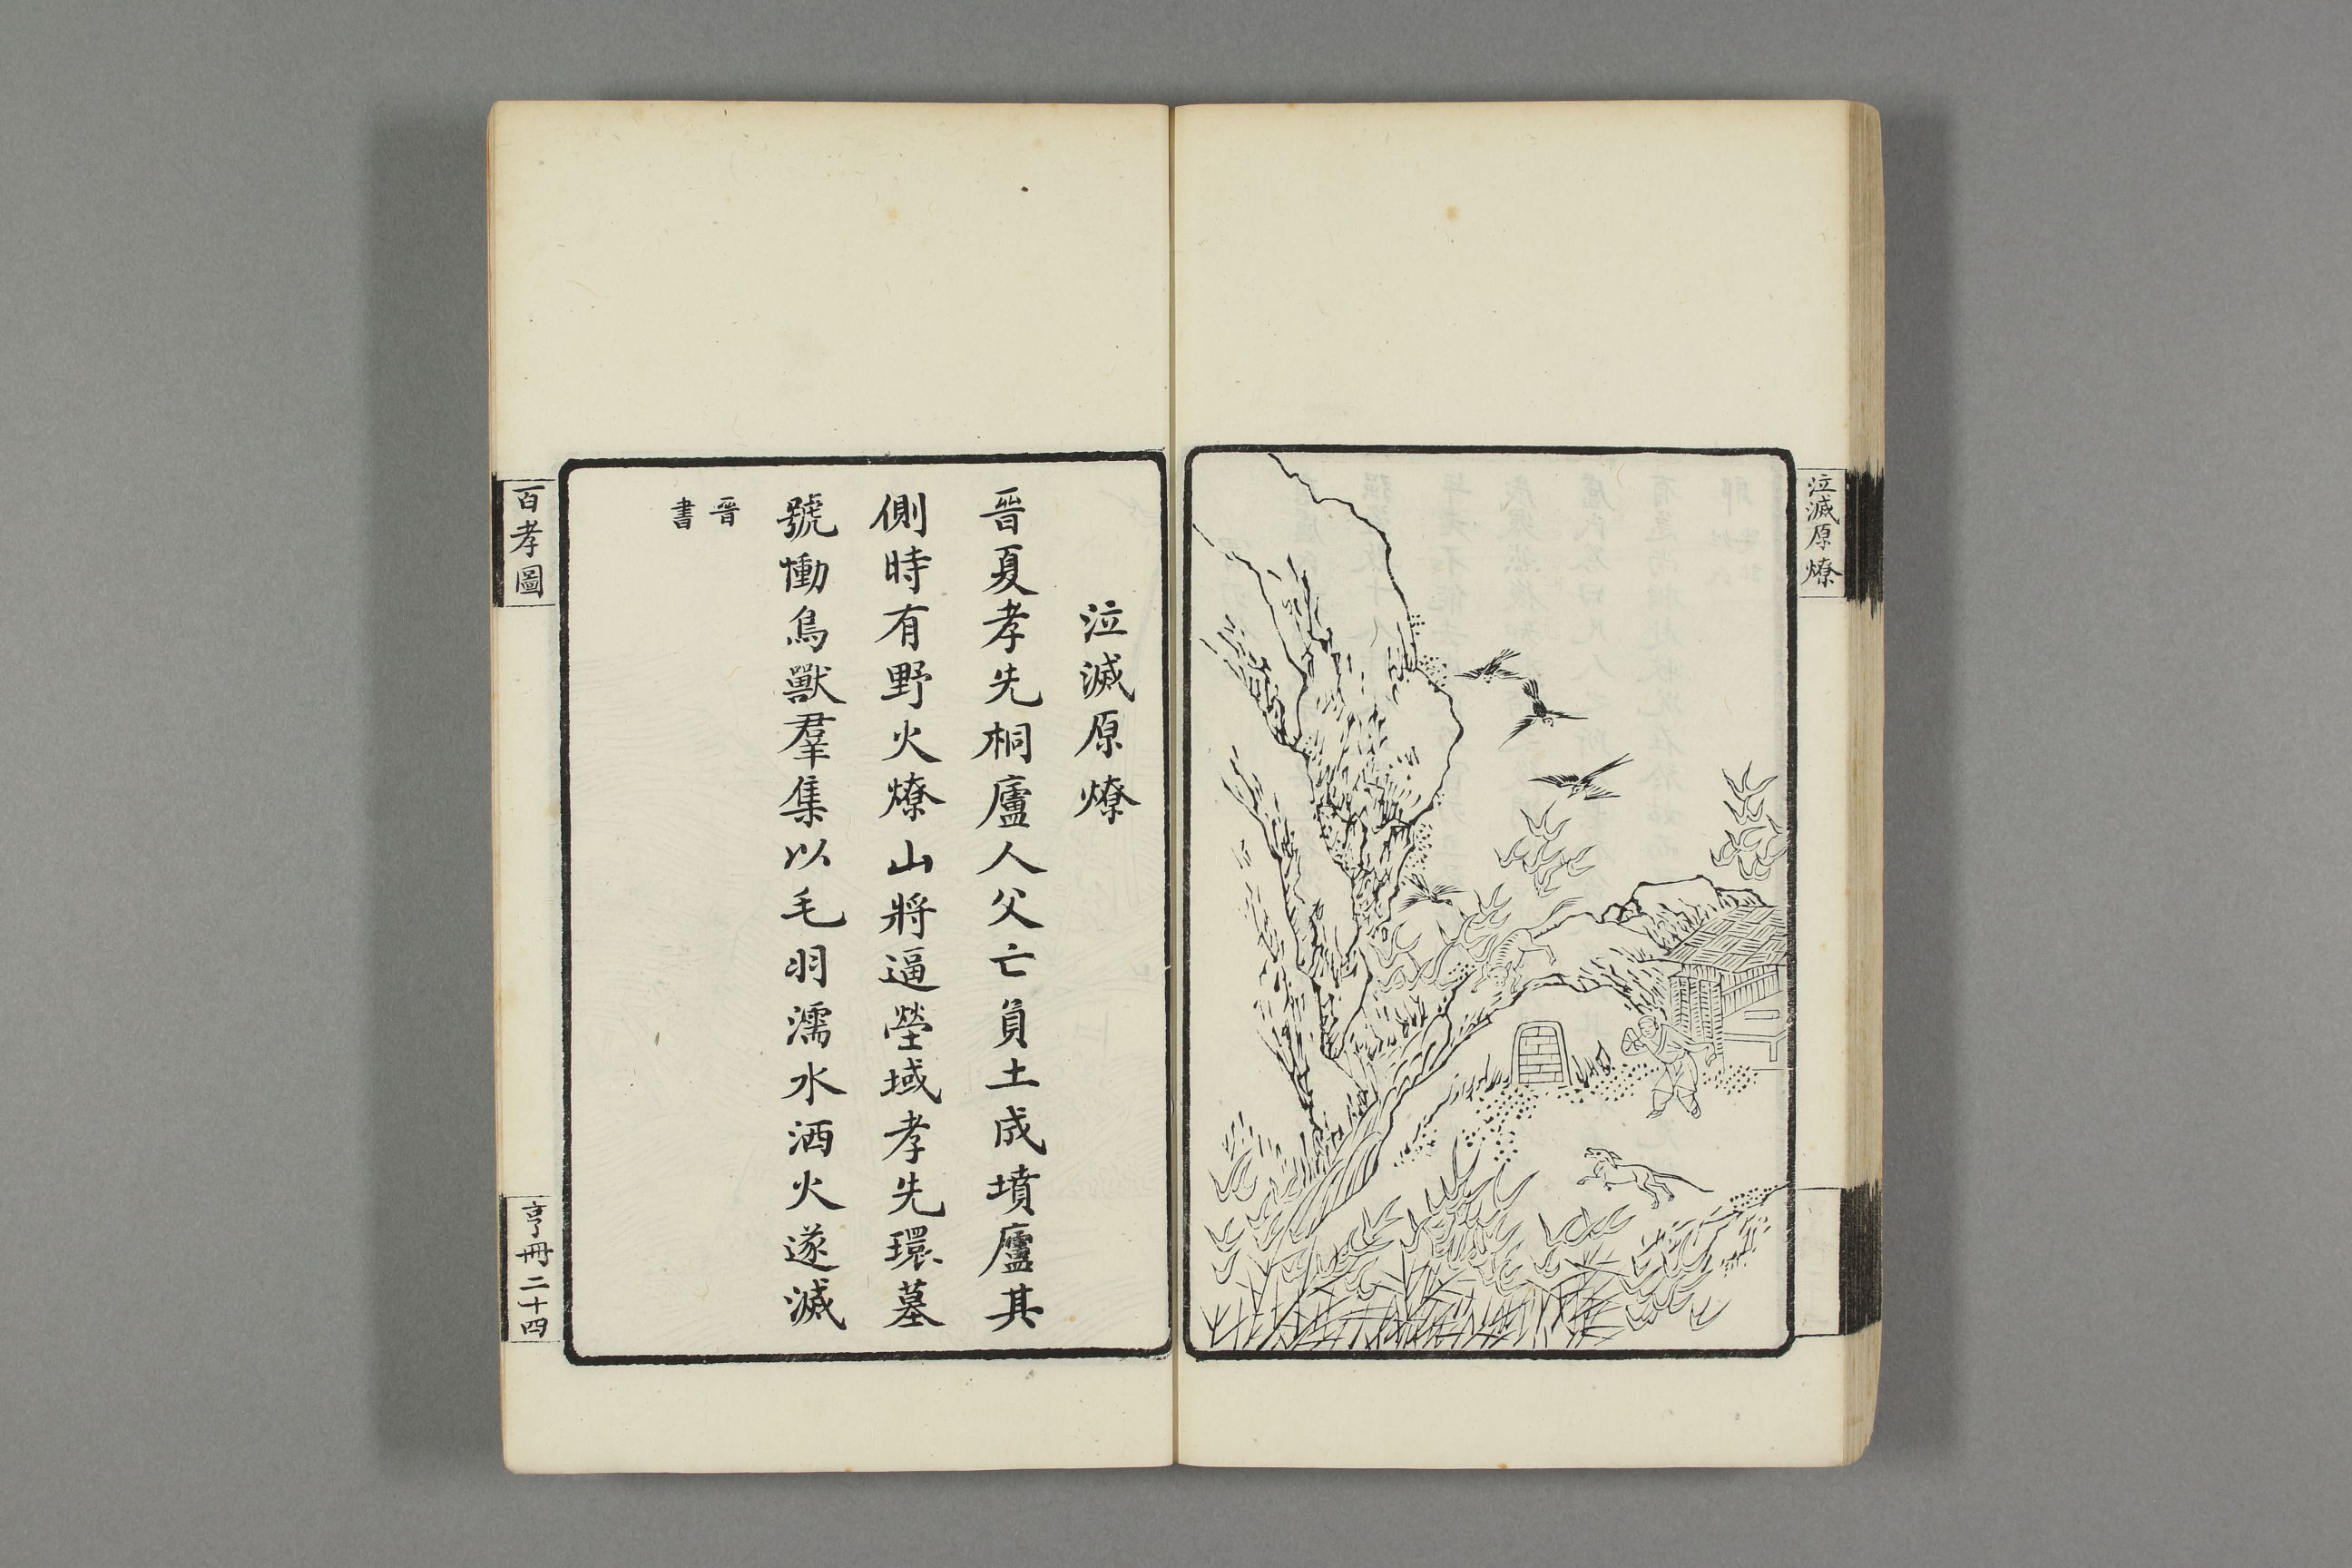 泣滅原燎
泣滅原燎
晉夏孝先桐廬人父亡負土成墳廬其
側時有野火燎山將逼塋域孝先環墓
號慟鳥獸羣集以毛羽濡水洒火遂滅
晉
書
百孝圖
亨冊二十四